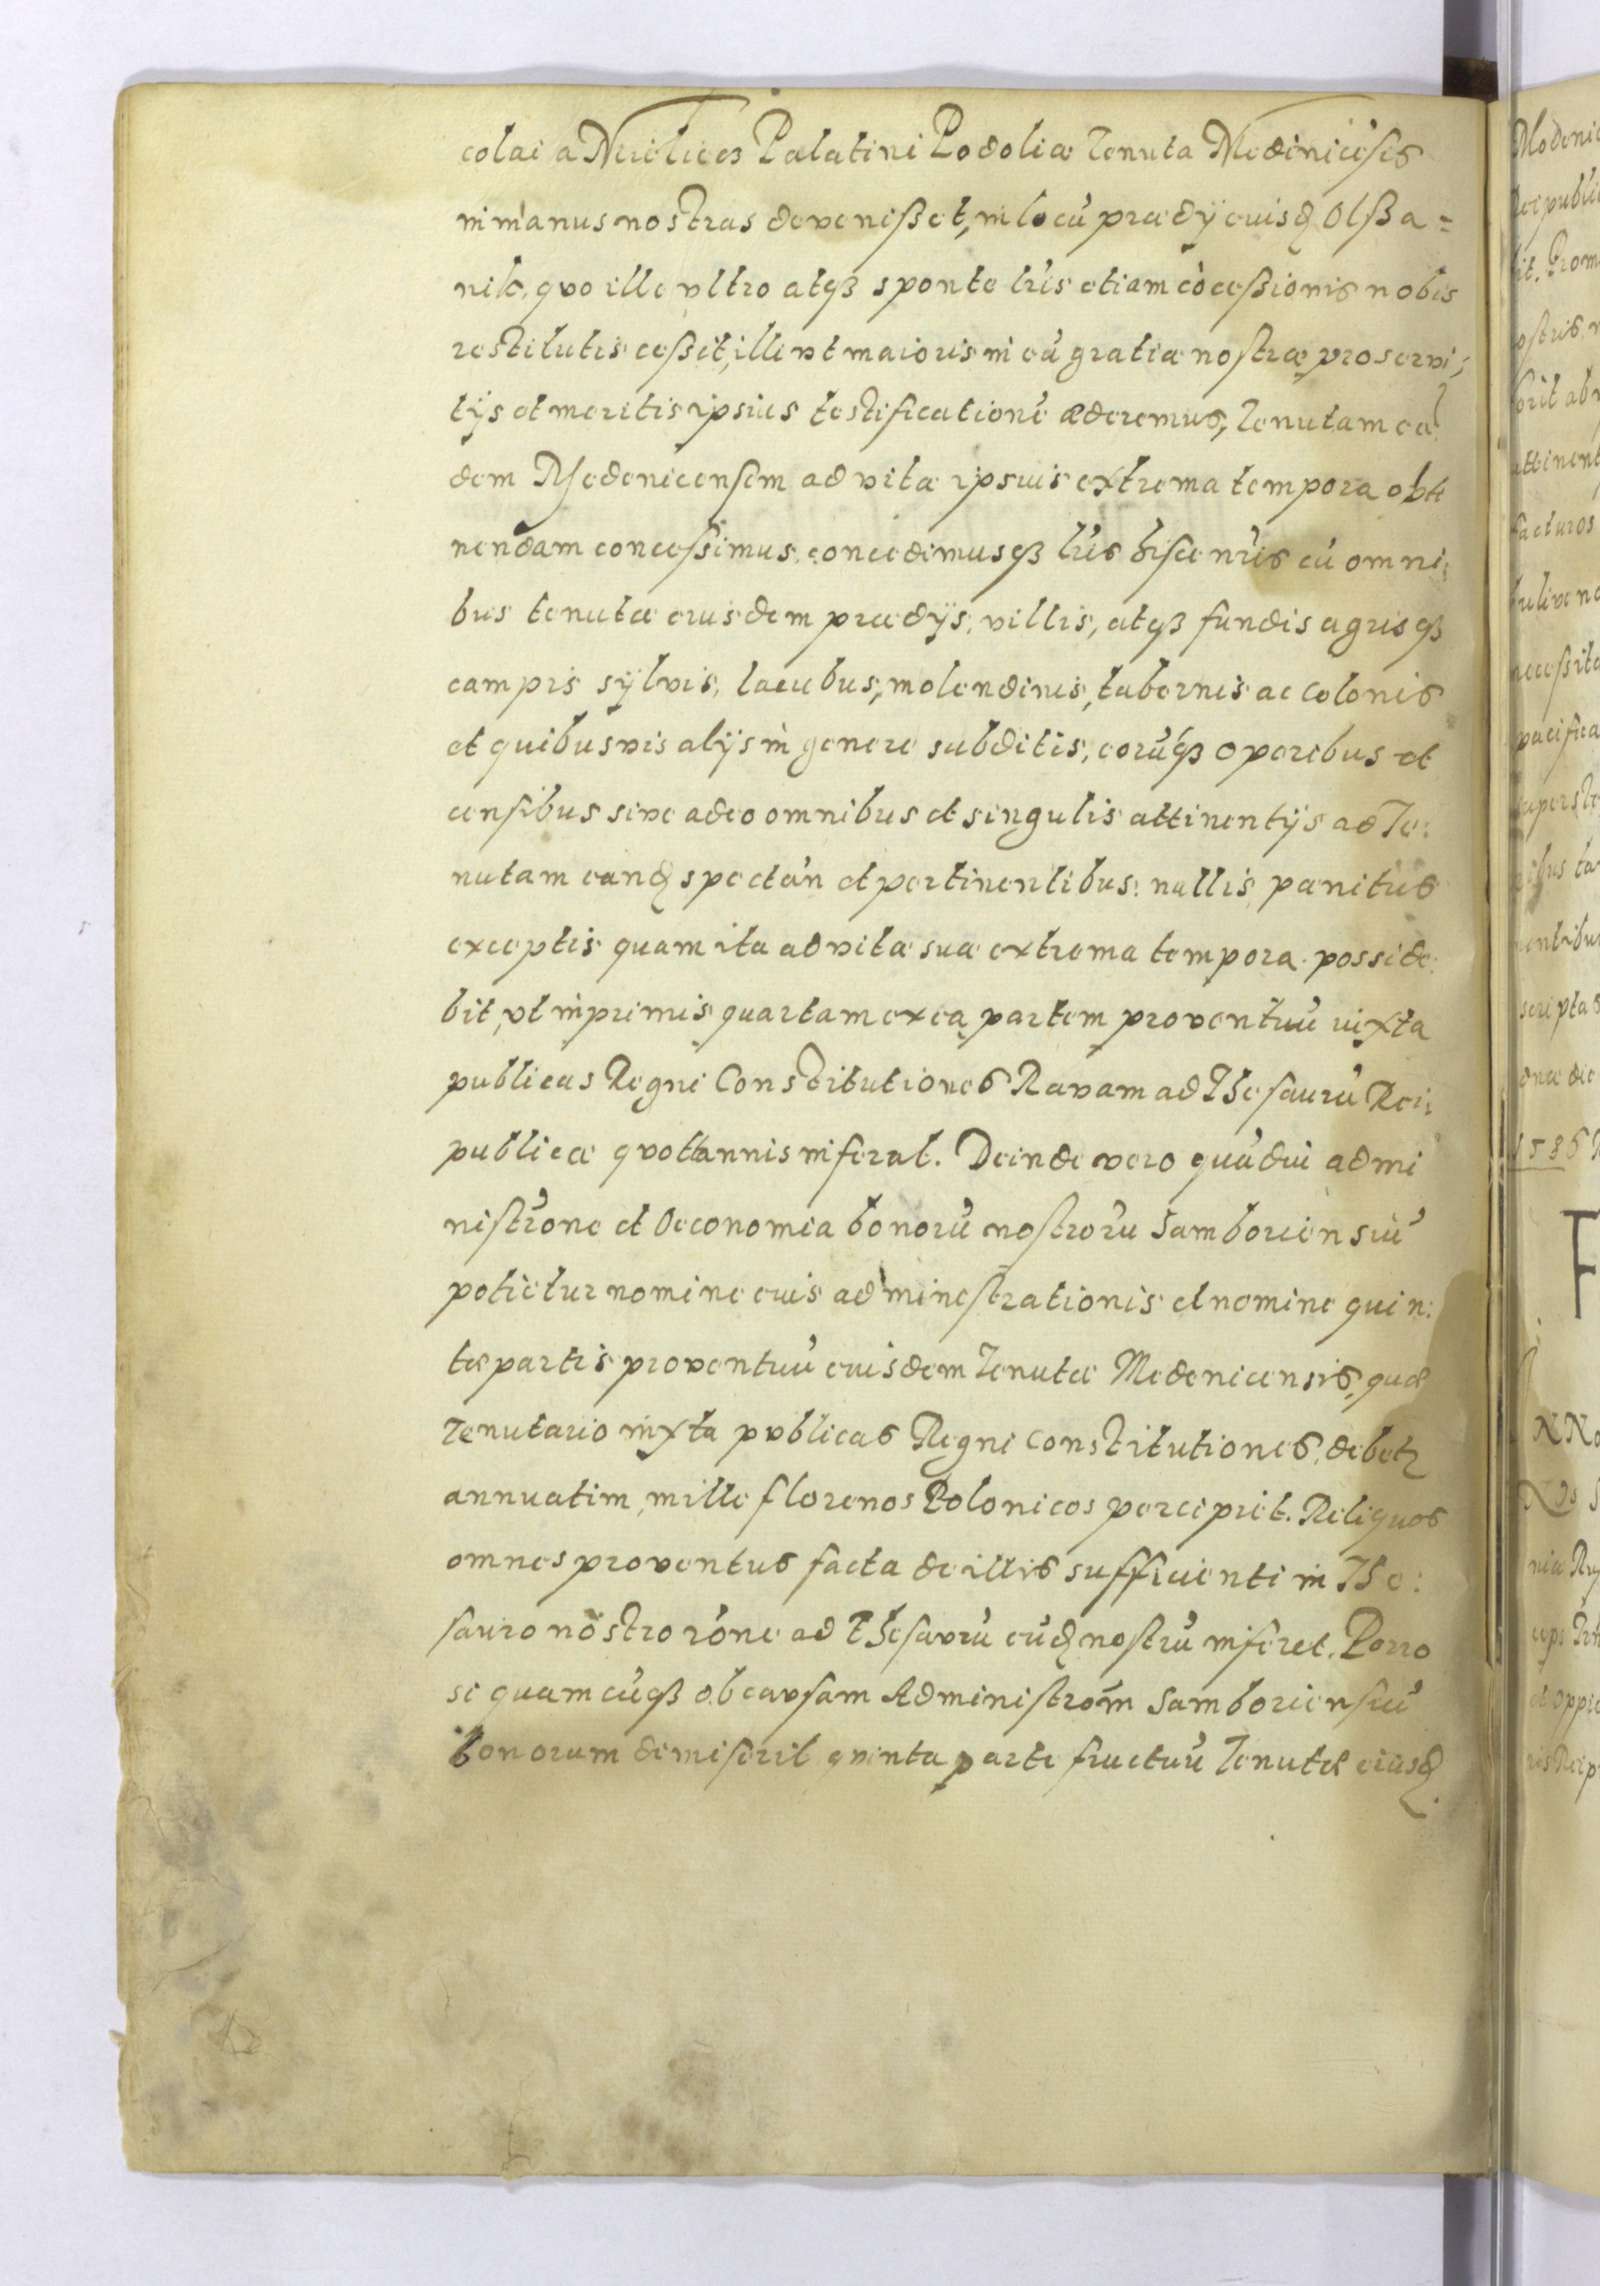 colai a Mieliecz Palatini Podoliæ Tenuta Medinicēsis
in manus nostras devenißet, in locū prædÿ euisđ Olßa=
nik, quo ille vltro atqȝ sponte lrīs etiam cōceßionis nobis
restitutis ceßit, illi vt maioris in eū gratiæ nostræ pro servi:
tÿs et meritis ipsius testificationē æderemus, Tenutam ea
dem Medenicensem ad vitæ ipsius extrema tempora obti
nendam concessimus, concedimusqȝ lrīs hisce nrīs cū omni:
bus tenutæ eiusdem prædÿs, villis, atqȝ fundis agrisqȝ
campis sÿlvis, lacubus, molendinis, tabernis ac Colonis
et quibusvis alÿs in genere subditis, eorūqȝ operibus et
censibus sive adeo omnibus et singulis attinentÿs ad Te:
nutam eanđ spectān et pertinentibus: nullis pænitus
exceptis quam ita ad vitæ suæ extrema tempora posside
bit, vt inprimis quartam ex ea partem proventuū iuxta
publicas Regni Constitutiones Ravam ad Thesaurū Rei:
publicæ quotannis inferat. Deinde vero quādiu admi
nistrōne et Oeconomia bonorū nostrorū Samboriensiū
potietur nomine euis administrationis et nomine quin:
tæ partis proventuū euisdem Tenutæ Medenicensis, quæ
Tenutario iuxta publicas Regni Constitutiones, debetr
annuatim, mille florenos Polonicos percipiet. Reliquos
omnes proventus facta de illis sufficienti in The:
sauro nostro rōne ad Thesavrū eūđ nostrū inferet. Porro
si quamcūqȝ ob cavsam Administrōm Samboriensiū
bonorum dimiserit quinta parte fructuū Tenutæ eiusđ